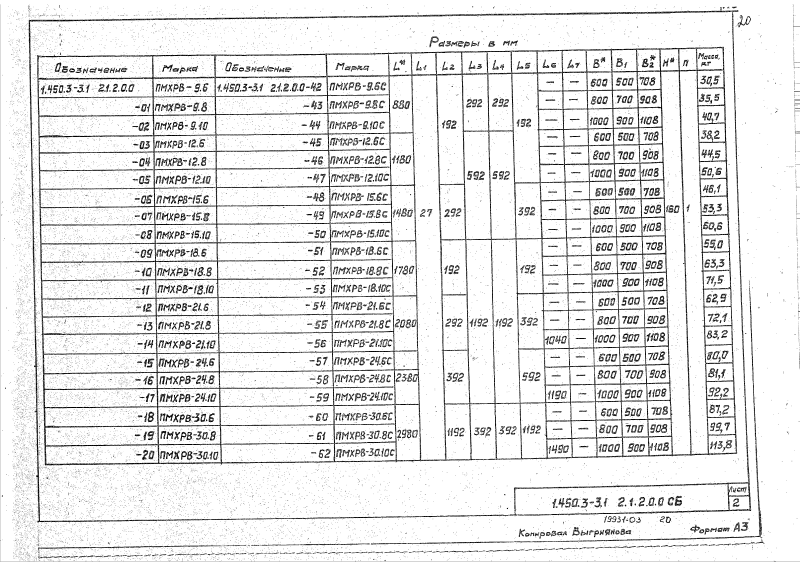 20
Размеры в мм
Обозначение Марка Обозначение Марка L*) L1 L2 L3 L4 L5 L6 L7 B* B1 B2* H* П Масса, кг
1.450.3-3.1 2.1.2.0.0 ПМХРВ-9.6 1.450.3-3.1 2.1.2.0.0-42 ПМХРВ-9.6С 880 27 192 292 292 192 — — 600 500 708 160 1 30,5
-01 ПМХРВ-9.8 -43 ПМХРВ-9.8С — — 800 700 908 35,5
-02 ПМХРВ-9.10 -44 ПМХРВ-9.10С — — 1000 900 1108 40,7
-03 ПМХРВ-12.6 -45 ПМХРВ-12.6С 1180 592 592 — — 600 500 708 38,2
-04 ПМХРВ-12.8 -46 ПМХРВ-12.8С — — 800 700 908 44,5
-05 ПМХРВ-12.10 -47 ПМХРВ-12.10С — — 1000 900 1108 50,6
-06 ПМХРВ-15.6 -48 ПМХРВ-15.6С 1480 292 392 — — 600 500 708 46,1
-07 ПМХРВ-15.8 -49 ПМХРВ-15.8С — — 800 700 908 53,3
-08 ПМХРВ-15.10 -50 ПМХРВ-15.10С — — 1000 900 1108 60,6
-09 ПМХРВ-18.6 -51 ПМХРВ-18.6С 1780 192 1192 1192 192 — — 600 500 708 55,0
-10 ПМХРВ-18.8 -52 ПМХРВ-18.8С — — 800 700 908 63,3
-11 ПМХРВ-18.10 -53 ПМХРВ-18.10С — — 1000 900 1108 71,5
-12 ПМХРВ-21.6 -54 ПМХРВ-21.6С 2080 292 392 — — 600 500 708 62,9
-13 ПМХРВ-21.8 -55 ПМХРВ-21.8С — — 800 700 908 72,1
-14 ПМХРВ-21.10 -56 ПМХРВ-21.10С 1040 — 1000 900 1108 83,2
-15 ПМХРВ-24.6 -57 ПМХРВ-24.6С 2380 392 592 — — 600 500 708 80,0
-16 ПМХРВ-24.8 -58 ПМХРВ-24.8С — — 800 700 908 81,1
-17 ПМХРВ-24.10 -59 ПМХРВ-24.10С 1190 — 1000 900 1108 92,2
-18 ПМХРВ-30.6 -60 ПМХРВ-30.6С 2980 1192 392 392 1192 — — 600 500 708 87,2
-19 ПМХРВ-30.8 -61 ПМХРВ-30.8С — — 800 700 908 99,7
-20 ПМХРВ-30.10 -62 ПМХРВ-30.10С 1490 — 1000 900 1108 113,8
1.450.3-3.1 2.1.2.0.0 СБ
Лист
2
19931-03 20
Копировал Выгриянова Формат А3